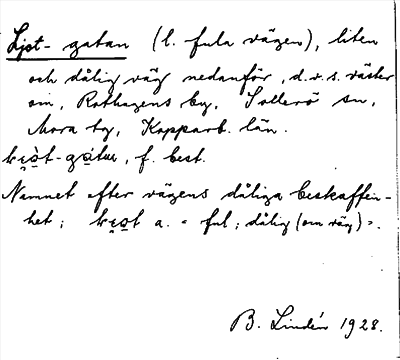 Ljot-gatan (l. fula vägen), liten
och dålig väg nedanför, d.v.s. väster
om, Rothagens by, Sollerö sn,
Mora tg, Kopparb. län.
f. best.
Namnet efter vägens dåliga beskaffen-
het; a. = ful; dålig (om väg) =.
B. Lindén 1928.